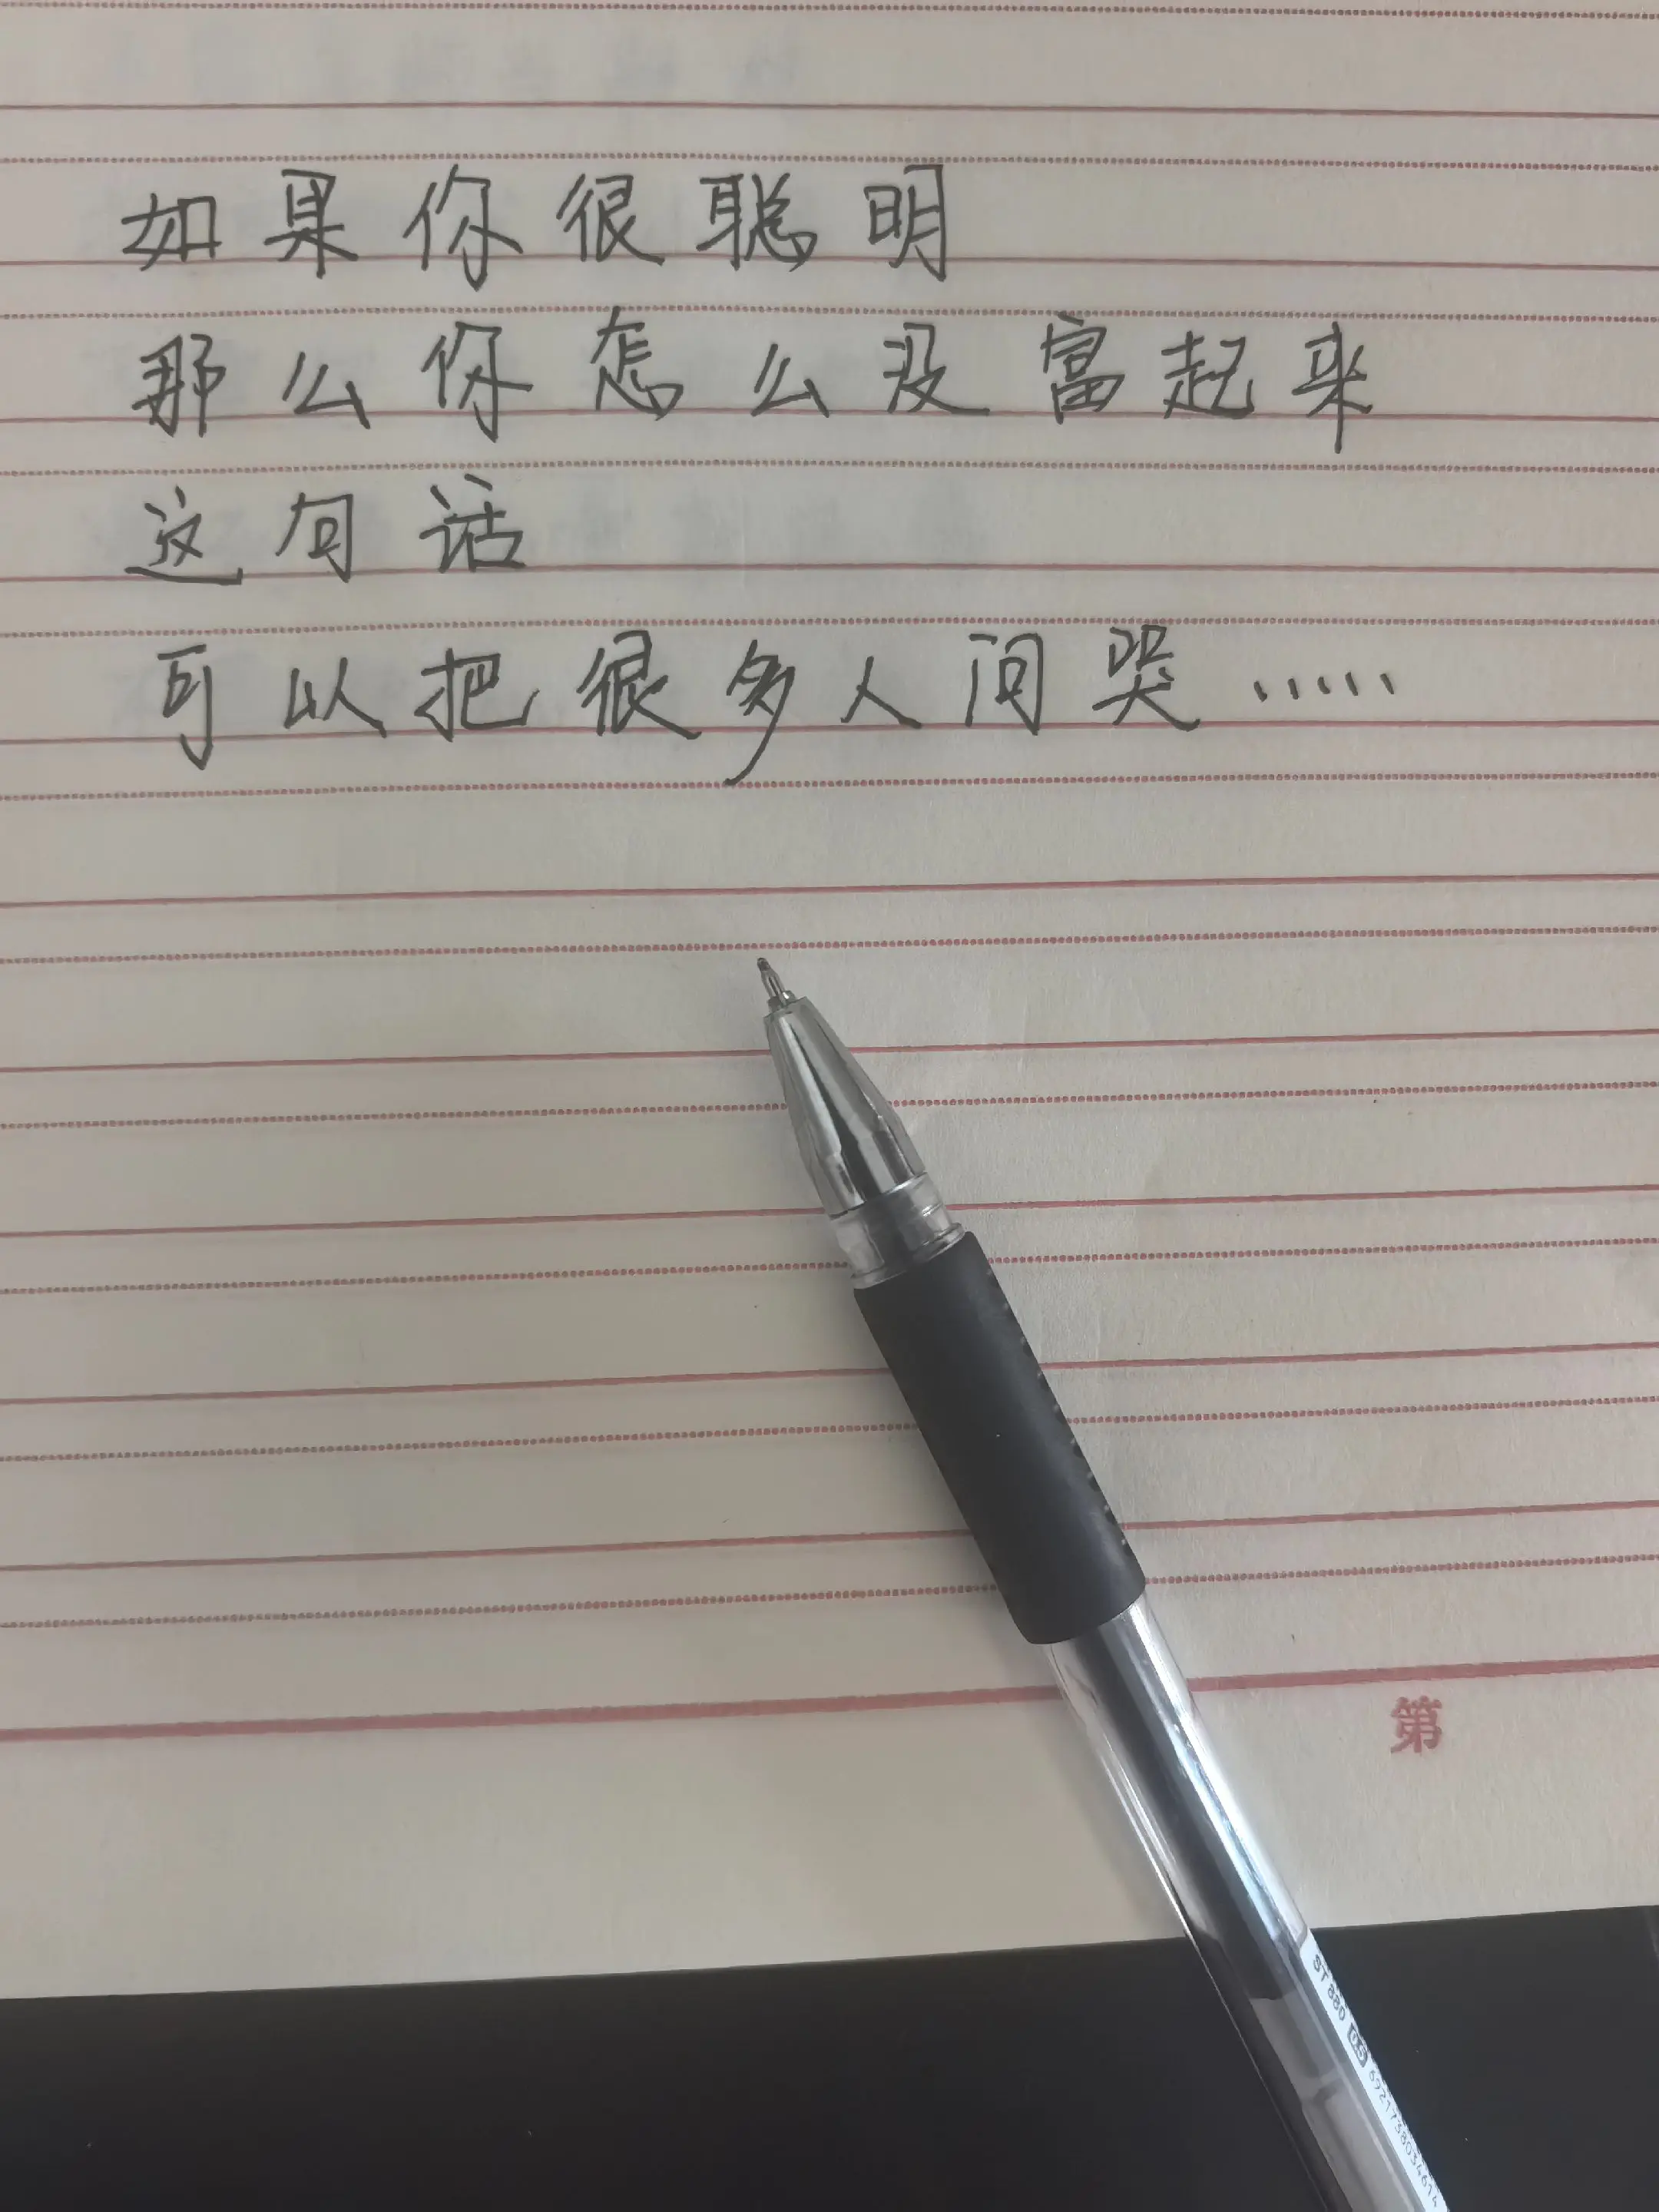 如果你很聪明
那么你怎么没富起来
这句话
可以把很多人问哭.....
第
ST 880 0.5 6921738034614